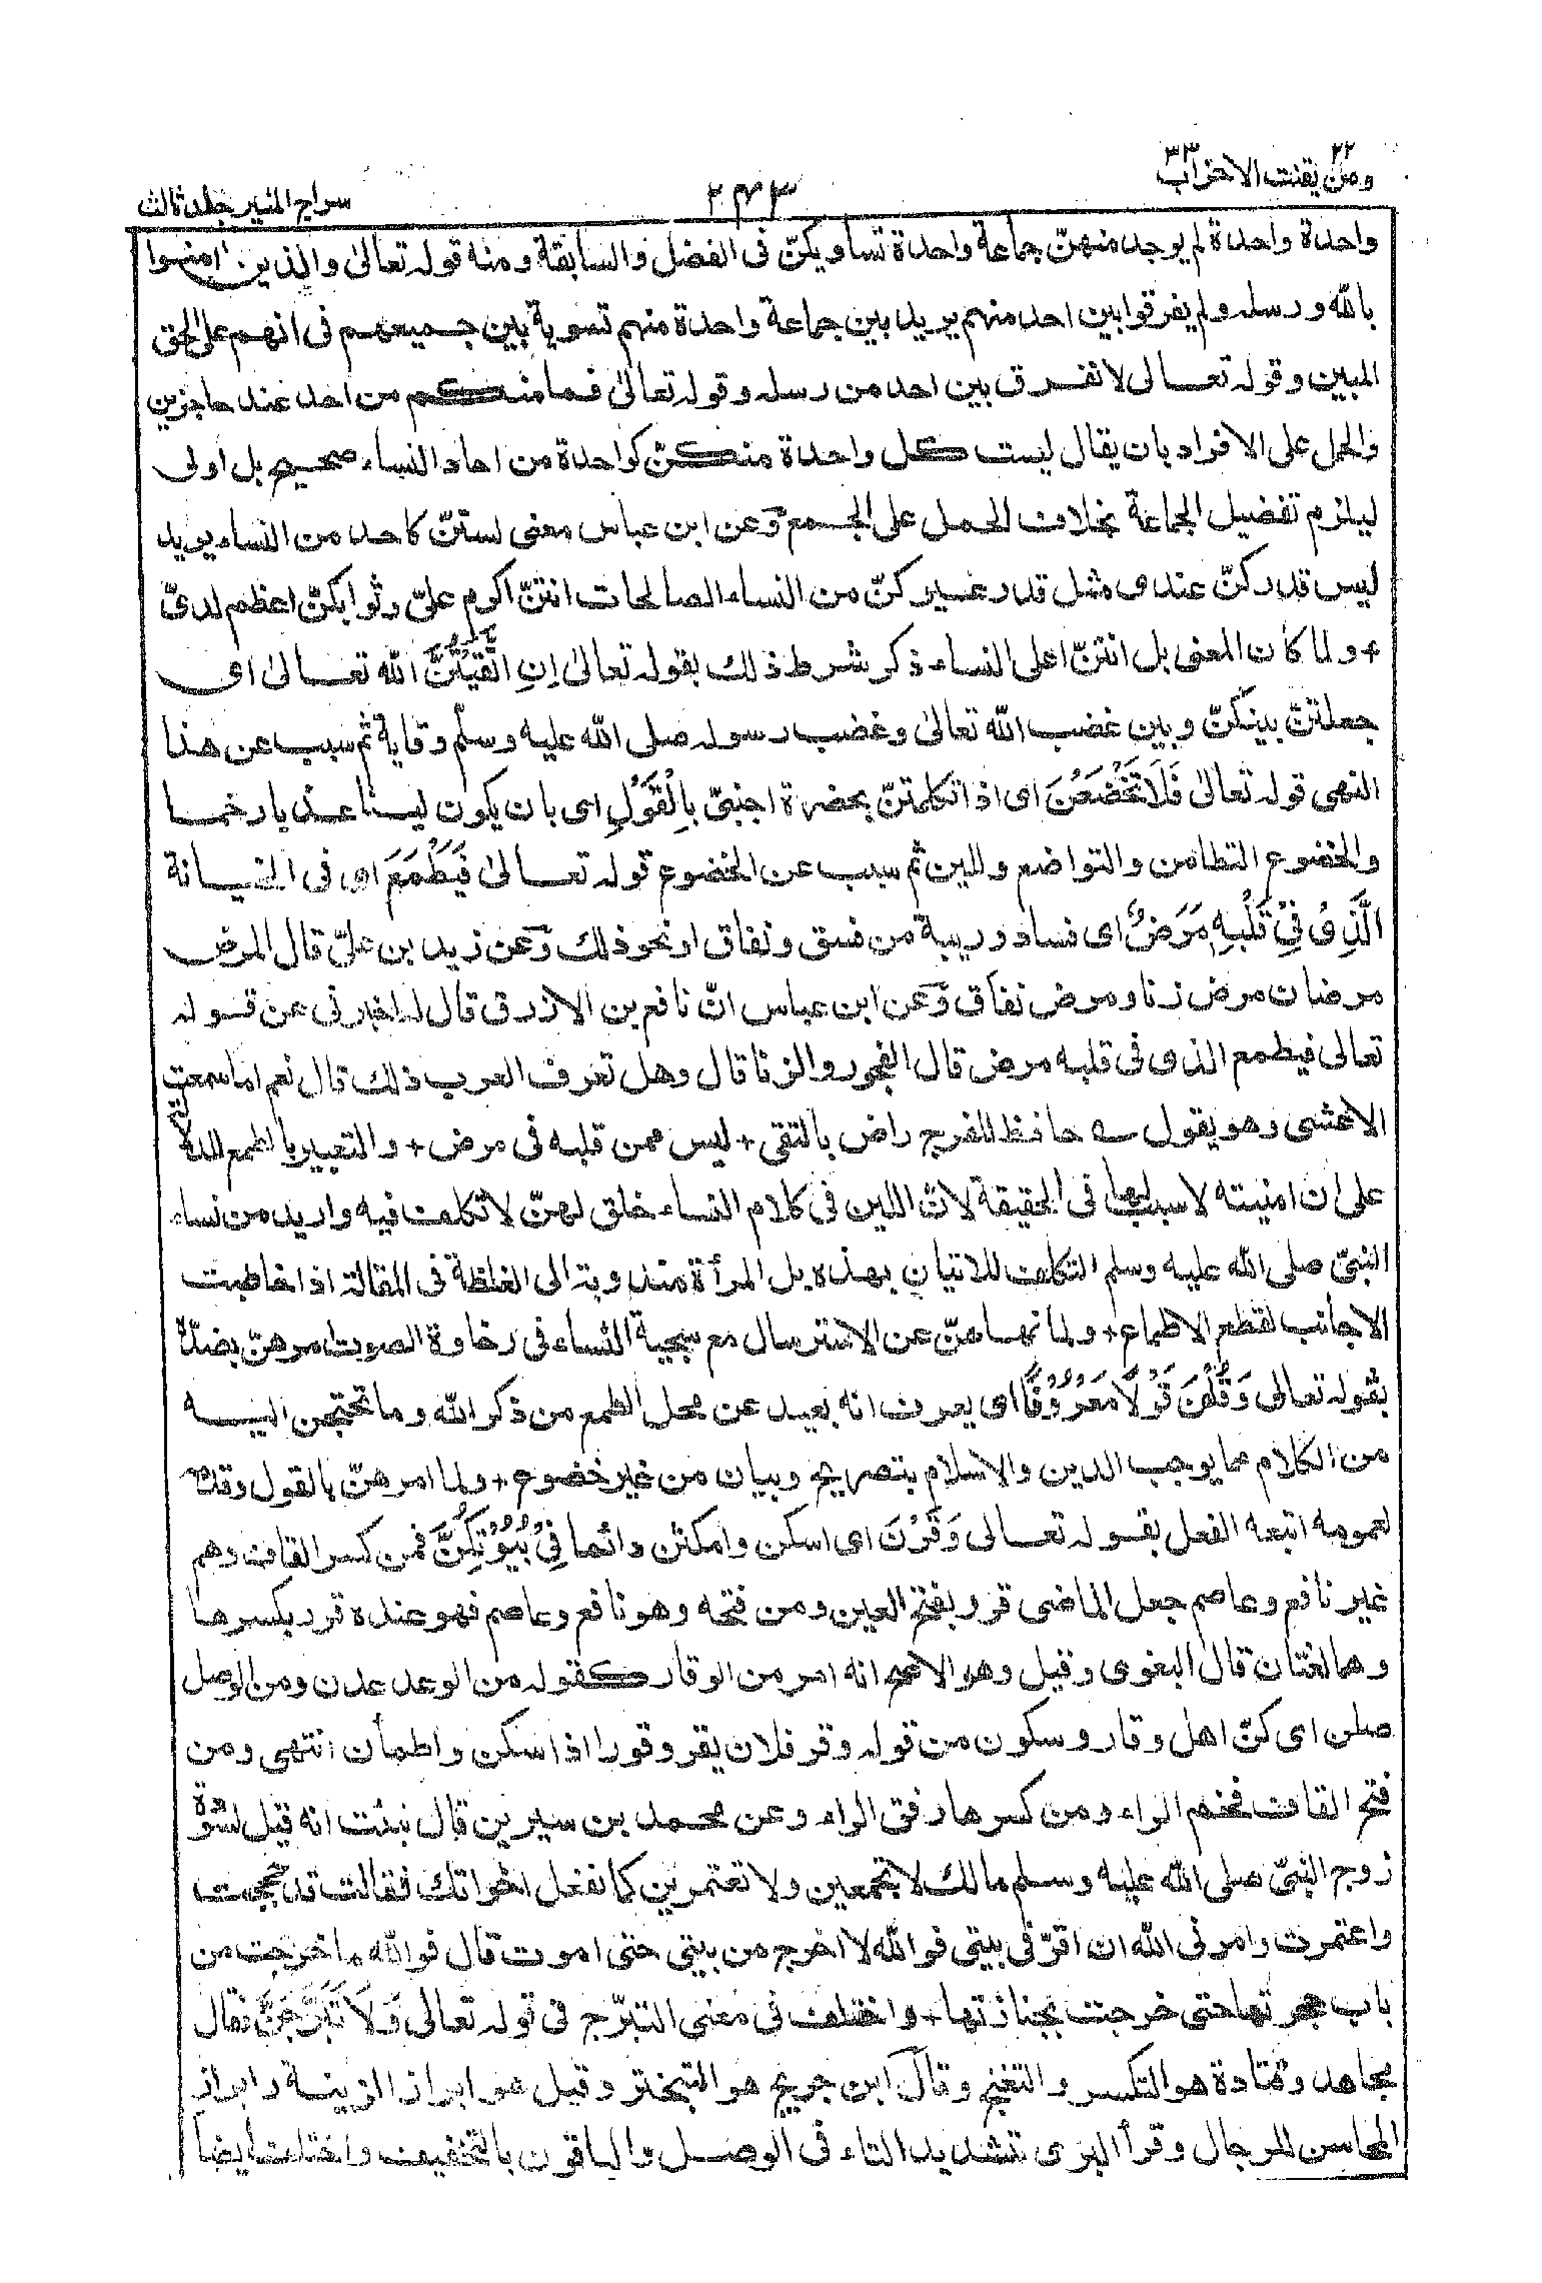 ومن يقنت ٢٢ الاحزاب ٣٣
٢٤٣
سراج المنير جلد ثالث
واحدة واحدة لم يوجد منهنّ جماعة واحدة تساويكنّ فى الفضل والسابقة ومنه قوله تعالىٰ والذين امنوا
بالله ورسله ولم يفرقوا بين احد منهم يريد بين جماعة واحدة منهم تسوية بين جميعهم فى انهم على الحق
المبين وقوله تعالى لا نفرق بين احد من رسله وقوله تعالىٰ فما منكم من احد عنه حاجزين
والحمل على الافراد بان يقال ليست كل واحدة منكنّ كواحدة من احاد النساء صحيح بل اولى
ليلزم تفضيل الجماعة بخلاف الحمل على الجمع وعن ابن عباس معنى لستنّ كاحد من النساء يريد
ليس قدركنّ عندى مثل قدر غيركنّ من النساء الصالحات انتنّ اكرم علىّ وثوابكنّ اعظم لدىّ
+ ولما كان المعنى بل انتنّ اعلى النساء ذكر شرط ذلك بقوله تعالىٰ اِنِ اتَّقَيْتُنَّ الله تعالىٰ اى
جعلتنّ بينكنّ وبين غضب الله تعالىٰ وغضب رسوله صلى الله عليه وسلّم وقاية ثم سبب عن هذا
النهى قوله تعالىٰ فَلَا تَخْضَعْنَ اى اذا تكلمتنّ بحضرة اجنبىّ بِالْقَوْلِ اى بان يكون لينا عذبا رخما
والخضوع التطامن والتواضع واللين ثم سبب عن الخضوع قوله تعالىٰ فَيَطْمَعَ اى فى الخيانة
الَّذِىْ فِىْ قَلْبِهٖ مَرَضٌ اى فساد وريبة من فسق ونفاق او نحو ذلك وعن زيد بن علىّ قال المرض
مرضان مرض زنا ومرض نفاق وعن ابن عباس انّ نافع بن الازرق قال له اخبرنى عن قوله
تعالى فيطمع الذى فى قلبه مرض قال الفجور والزنا قال وهل تعرف العرب ذلك قال نعم اما سمعت
الاعشى وهو يقول ؎ حافظ للفرج راض بالتقى + ليس ممن قلبه فى مرض + والتعبير بالطمع للدلالة
على ان امنيته لا سبب لها فى الحقيقة لانّ اللين فى كلام النساء خلق لهنّ لا تكلف فيه واريد من نساء
النبىّ صلى الله عليه وسلم التكلف للاتيان بهذه بل المرأة مندوبة الى الغلظة فى المقالة اذا خاطبت
الاجانب لقطع الاطماع + ولما نهاهنّ عن الاسترسال مع سجية النساء فى رخاوة الصوت امرهنّ بضدّه
بقوله تعالى وَقُلْنَ قَوْلًا مَّعْرُوْفًا اى يعرف انه بعيد عن محل الطمع من ذكر الله وما تحتجن اليه
من الكلام مما يوجب الدين والاسلام بتصريح وبيان من غير خضوع + ولما امرهنّ بالقول وقدّمه
لعمومه اتبعه الفعل بقوله تعالى وَقَرْنَ اى اسكن وامكثن دائما فِىْ بُيُوْتِكُنَّ فمن كسر القاف وهم
غير نافع وعاصم جعل الماضى قرر بفتح العين ومن فتحه وهو نافع وعاصم فهو عنده قرر بكسرها
وهما لغتان قال البغوى وقيل وهو الاصح انه امر من الوقار كقوله من الوعد عدن ومن الوصل
صلن اى كنّ اهل وقار وسكون من قوله وقر فلان يقر وقورا اذا سكن واطمأن انتهى ومن
فتح القاف فخم الراء ومن كسرها رقق الراء وعن محمد بن سيرين قال نبئت انه قيل لسودة
زوج النبىّ صلى الله عليه وسلم مالك لا تحجين ولا تعتمرين كما تفعل اخواتك فقالت قد حججت
واعتمرت وامرنى الله ان اقرّ فى بيتى فوالله لا اخرج من بيتى حتى اموت قال فوالله ما خرجت من
باب حجرتها حتى خرجت بجنازتها + واختلف فى معنى التبرّج فى قوله تعالى وَلَا تَبَرَّجْنَ فقال
مجاهد وقتادة هو التكسر والتغنج وقال ابن جريج هو التبختر وقيل هو ابراز الزينة وابراز
المحاسن للرجال وقرأ البزى بتشديد التاء فى الوصل والباقون بالتخفيف واختلف ايضا